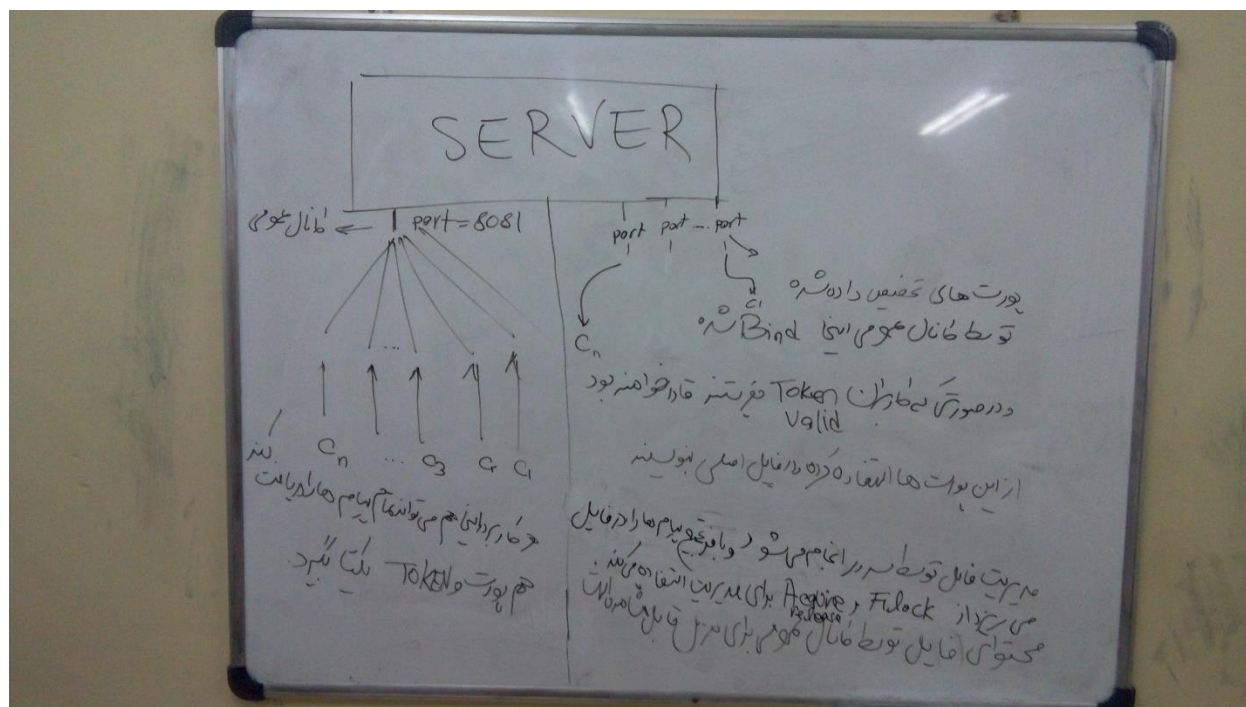 SERVER
کانال عمومی ← port = 8081
port port ... port
C1
Cn
پورت های تخصیص داده شده
توسط کانال عمومی اینجا Bind شده
و در صورتی که کاربران Token بفرستند قادر خواهند بود
Valid
از این پورت ها استفاده کرده در فایل اصلی بنویسند
مدیریت فایل توسط سرور انجام می شود و پیام ها را در فایل
می ریزد از Filock و Acquire برای مدیریت استفاده می کند.
Release
محتوای فایل توسط کانال عمومی برای قابل مشاهده است
Cn ... C3 C2 C1
هر کاربر در اینجا هم می تواند تمام پیام ها را دریافت
کند
هم پورت و TOKEN یکتا بگیرد.